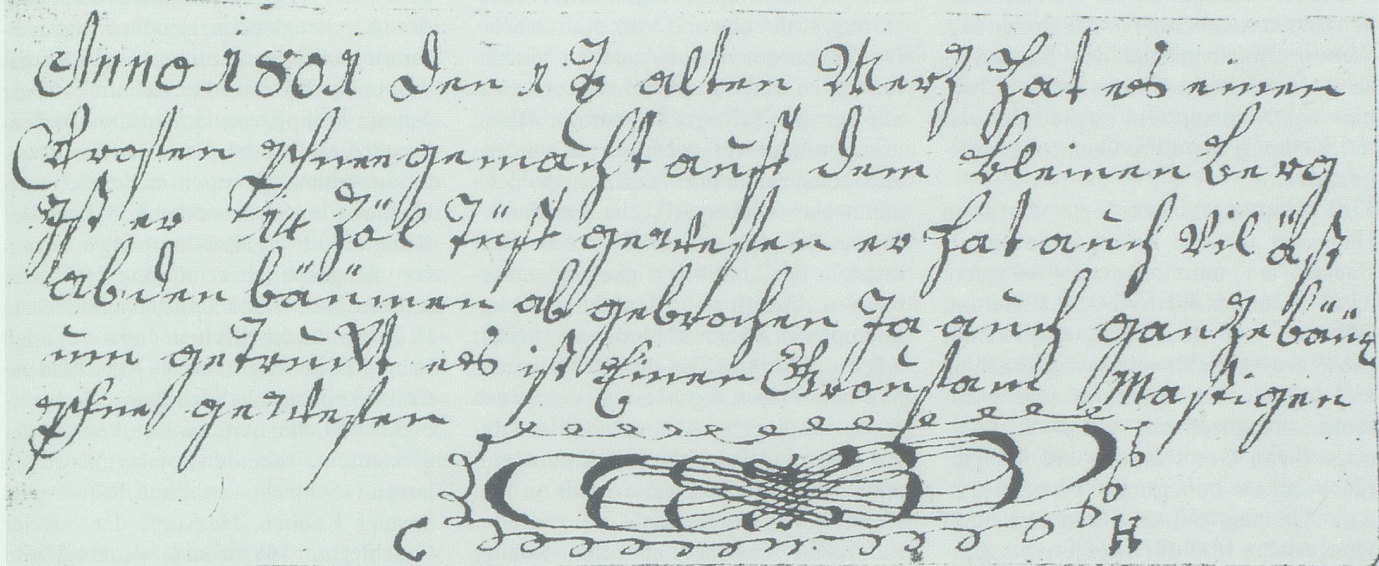 Anno 1801 den 18 alten Merz hat es einen
Grosen schnee gemacht auff dem kleinen berg
Ist er Zöl tüff gewessen er hat auch vil äst
ab den bäümen ab gebrochen Ja auch ganze bäüm
um getruckt es ist Einen Grousam Mastigen
schne gewessen
C H